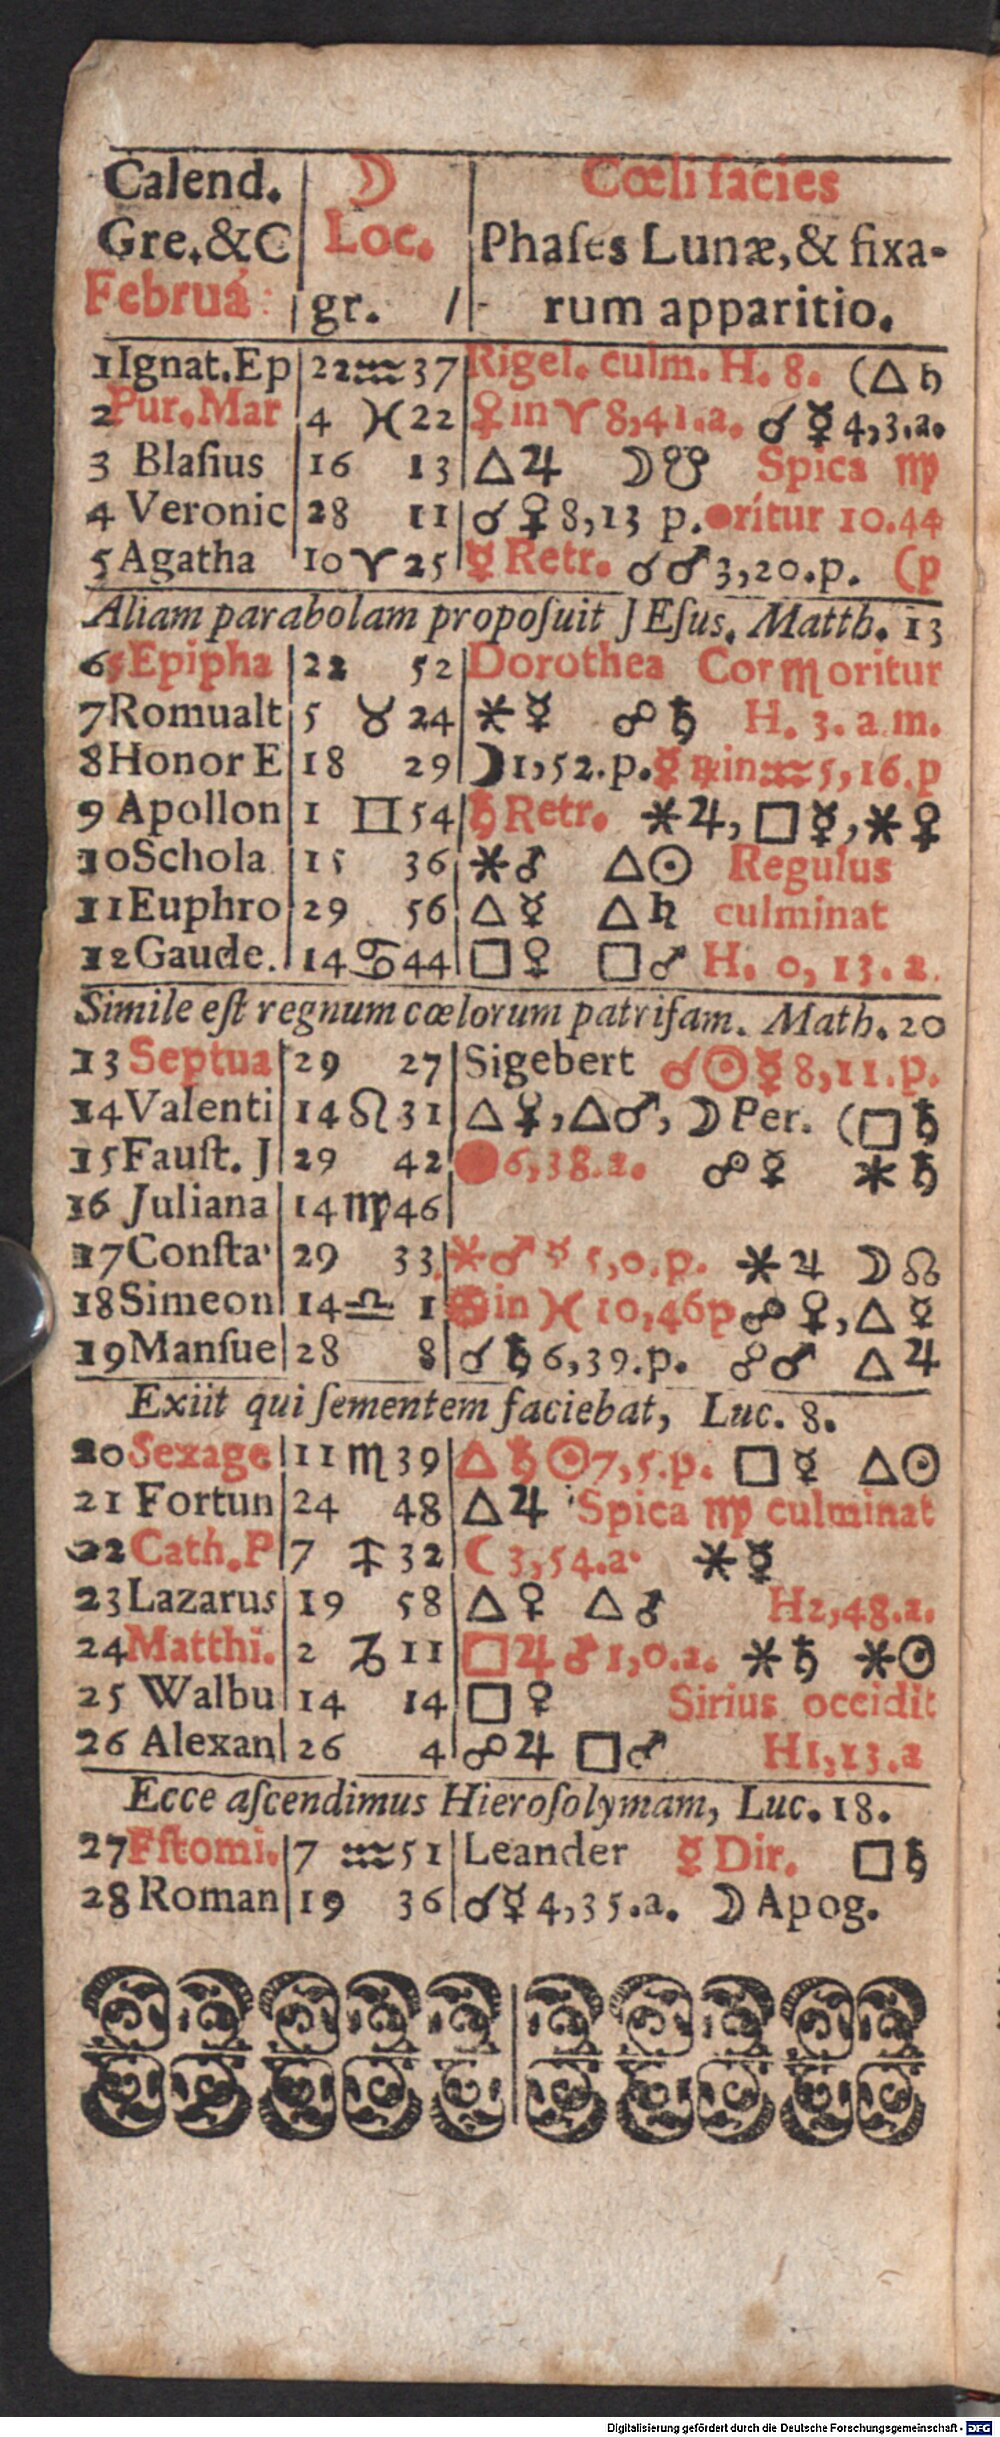 Calend. ☽ Cœli facies
Gre.&C Loc. Phaſes Lunæ,& fixa-
Februá: gr. / rum apparitio.
1 Ignat.Ep 22 ♒ 37 Rigel. culm. H. 8. (△ ♄
2 Pur.Mar 4 ♓ 22 ♀ in ♈ 8,41.a. ☌ ☿ 4,3.a.
3 Blaſius 16 13 △ ♃ ☽ ☋ Spica ♍
4 Veronic 28 11 ☌ ♀ 8,13 p. oritur 10.44
5 Agatha 10 ♈ 25 ☿ Retr. ☌ ♂ 3,20.p. (p
Aliam parabolam propoſuit JEſus. Matth. 13
6 5 Epipha 22 52 Dorothea Cor ♏ oritur
7 Romualt 5 ♉ 24 ⚹ ☿ ☍ ♄ H. 3. a m.
8 Honor E 18 29 ☽ 1,52.p. ☿ ℞ in ♒ 5,16.p
9 Apollon 1 ♊ 54 ♄ Retr. ⚹ ♃, □ ☿, ⚹ ♀
10 Schola 15 36 ⚹ ♂ △ ☉ Regulus
11 Euphro 29 56 △ ☿ △ ♄ culminat
12 Gaude. 14 ♋ 44 □ ♀ □ ♂ H. 0, 13. a.
Simile eſt regnum cœlorum patrifam. Math. 20
13 Septua 29 27 Sigebert ☌ ☉ ☿ 8,11.p.
14 Valenti 14 ♌ 31 △ ♀, △ ♂, ☽ Per. (□ ♄
15 Fauſt. J 29 42 ● 6,38.a. ☍ ☿ ⚹ ♄
16 Juliana 14 ♍ 46
17 Conſta 29 33 ⚹ ♂ ☿ 5,0.p. ⚹ ♃ ☽ ☊
18 Simeon 14 ♎ 1 ☉ in ♓ 10,46p ☍ ♀, △ ☿
19 Manſue 28 8 ☌ ♄ 6,39.p. ☍ ♂ △ ♃
Exiit qui ſementem faciebat, Luc. 8.
20 Sexage 11 ♏ 39 △ ♄ ☉ 7,5.p. □ ☿ △ ☉
21 Fortun 24 48 △ ♃ Spica ♍ culminat
22 Cath.P 7 ♐ 32 ☾ 3,54.a. ⚹ ☿
23 Lazarus 19 58 △ ♀ △ ♂ H2,48.a.
24 Matthi. 2 ♑ 11 □ ♃ ♂ 1,0.a. ⚹ ♄ ⚹ ☉
25 Walbu 14 14 □ ♀ Sirius occidit
26 Alexan 26 4 ☍ ♃ □ ♂ H1,13.a
Ecce aſcendimus Hieroſolymam, Luc. 18.
27 Eſtomi. 7 ♒ 51 Leander ☿ Dir. □ ♄
28 Roman 19 36 ☌ ☿ 4,35.a. ☽ Apog.
Digitalisierung gefördert durch die Deutsche Forschungsgemeinschaft - DFG